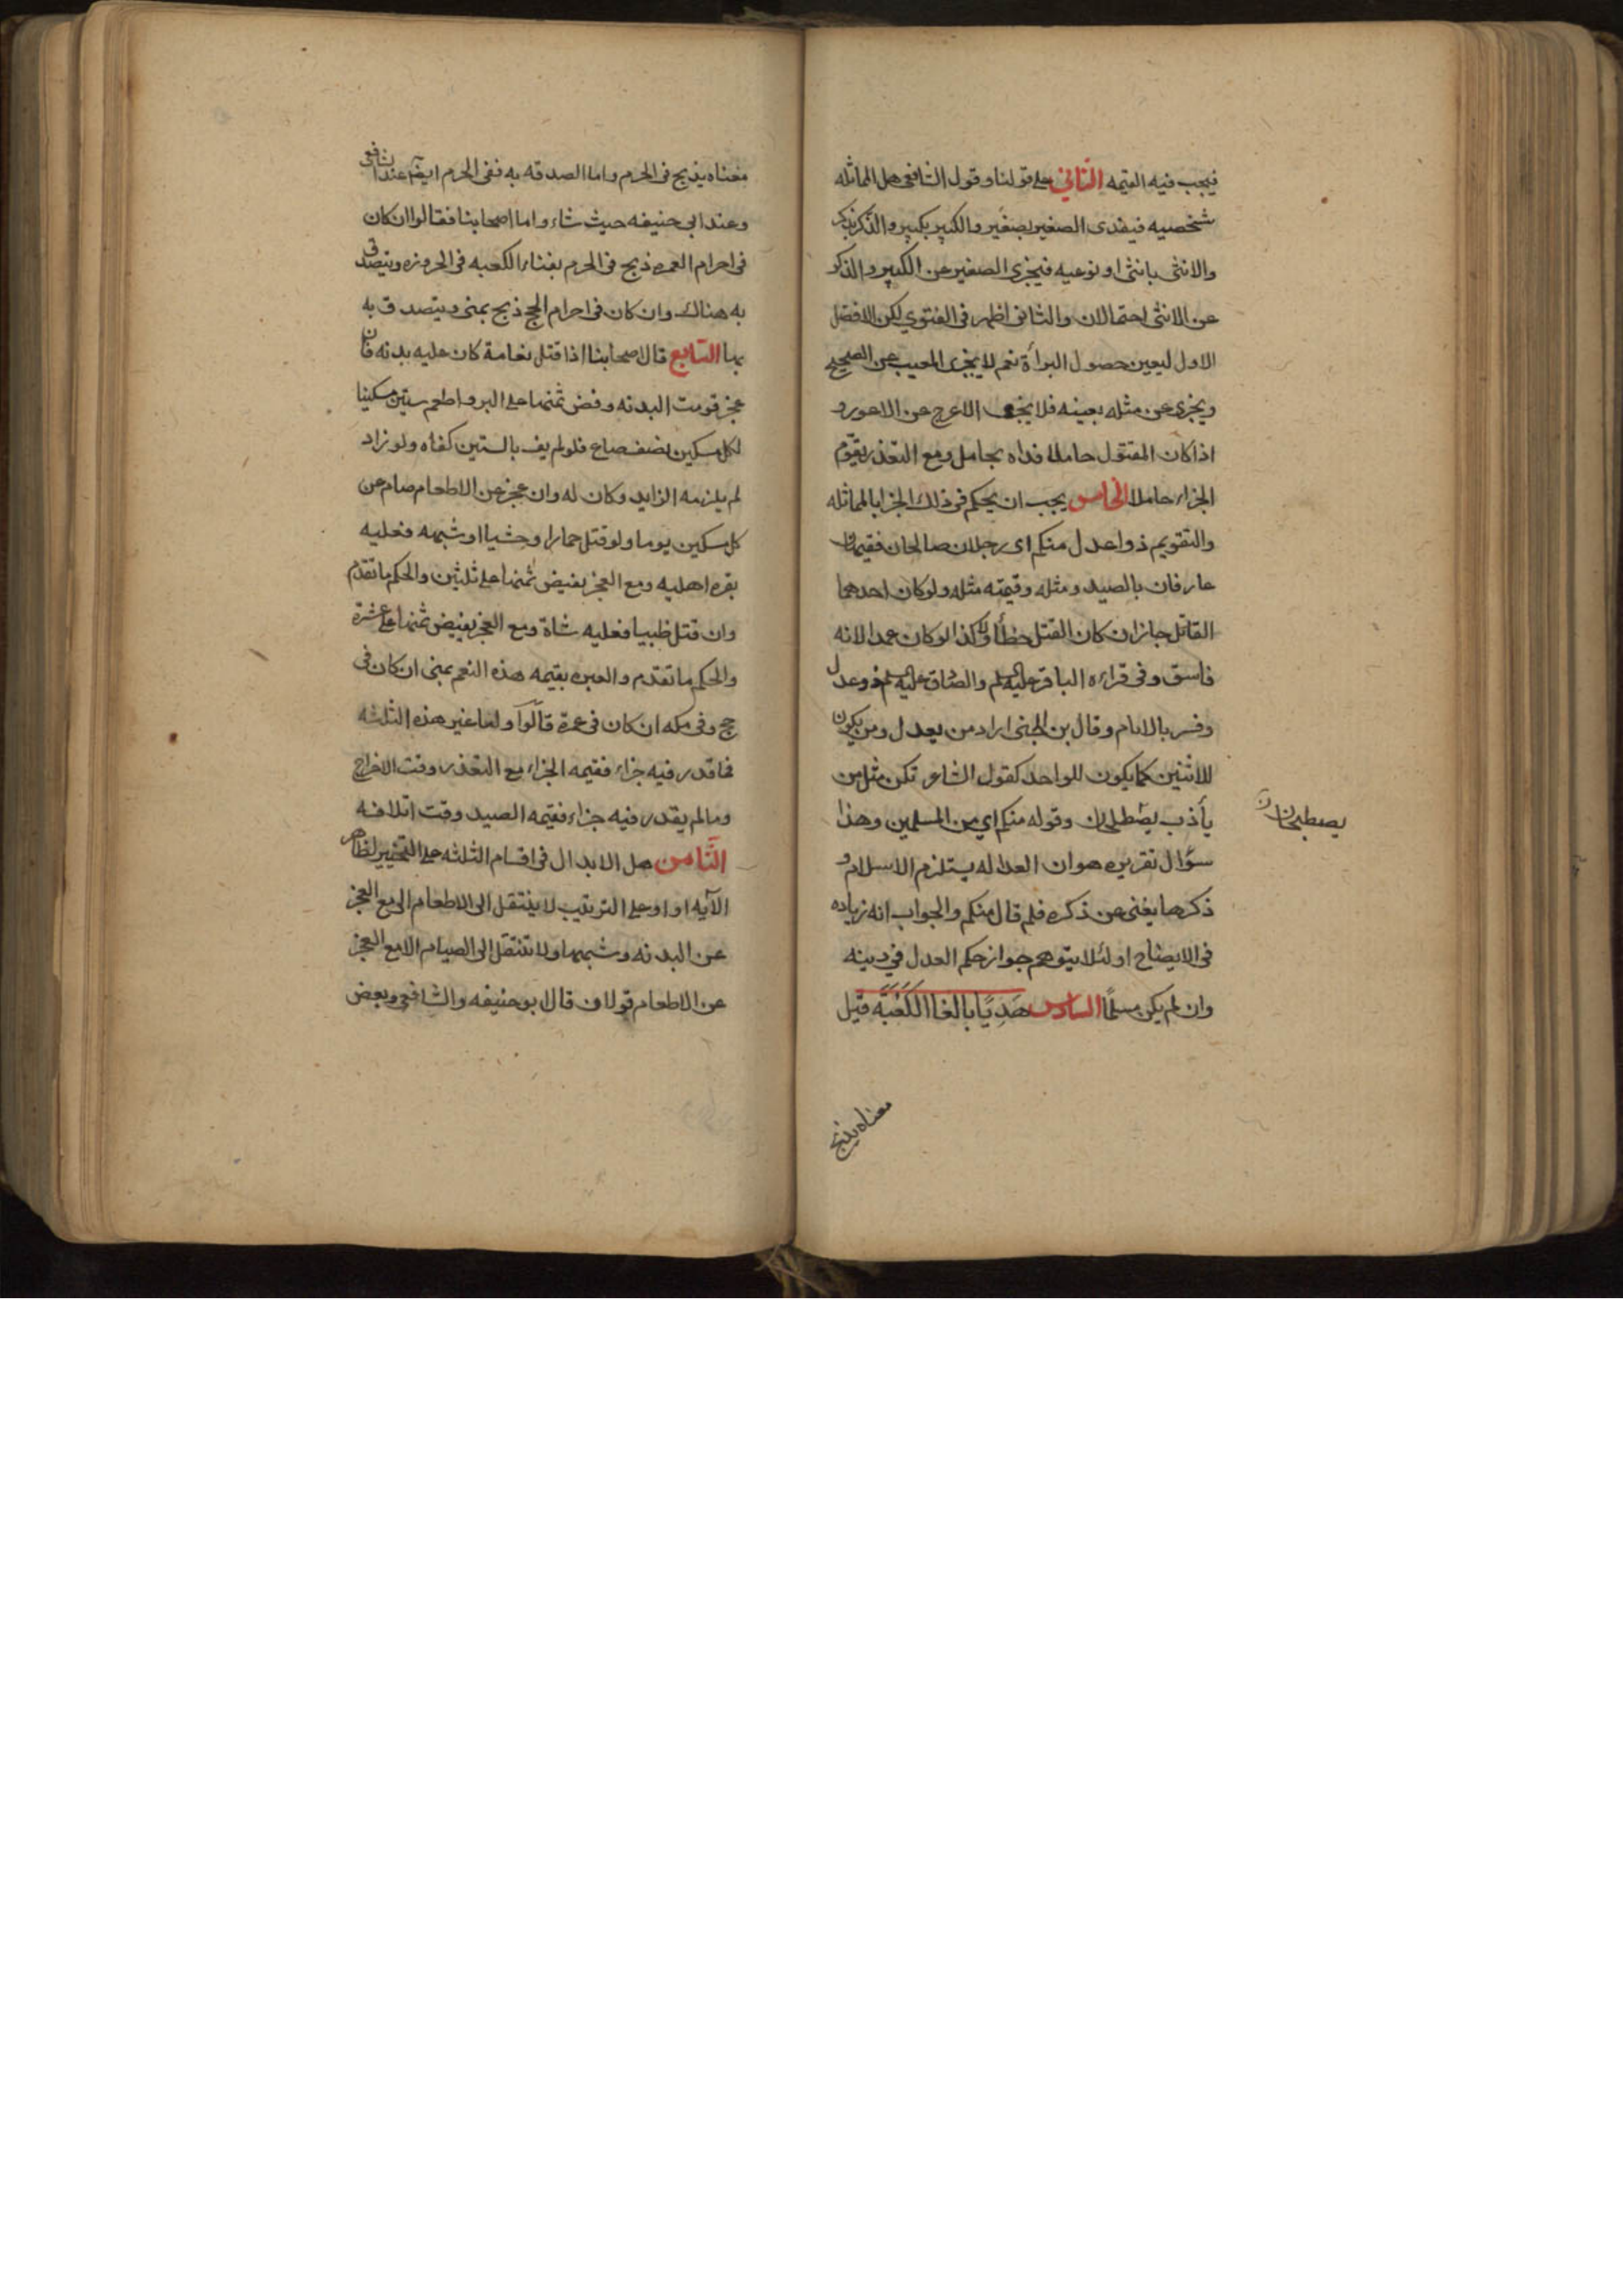 فيجب فيه القيمه الثاني على قولنا وقول الشافعى هل المماثله
شخصيه فيفدى الصغير بصغير والكبير بكبير والذكر بذكر
والانثى بانثى او نوعيه فيجزى الصغير عن الكبير والذكر
عن الانثى احتمالان والثانى اظهر فى الفتوي لكن الافضل
الاول ليعين حصول البرأة نعم لا يجزى المعيب عن الصحيح
ويجزى عن مثله بعينه فلا يجزى الاعرج عن الاعور و
اذا كان المقتول حاملا فداه بحامل ومع التعذر يقوّم
الجزاء حاملا الخامس يجب ان يحكم فى ذلك الجزا بالمماثله
والتقويم ذوا عدل منكم اى رجلان صالحان فقيهان
عارفان بالصيد ومثله وقيمته مثله ولو كان احدهما
القاتل جاز ان كان القتل خطأ ولا كذا لو كان عمدا لانه
فاسق وفى قراءه الباقر عليه السلم والصادق عليه السلم ذو عدل
وفسر بالامام وقال بن الجنى اراد من يعدل ومن يكون
للاثنين كما يكون للواحد كقول الشاعر تكن مثل من
يأذب يصطلحان وقوله منكم اي من المسلمين وهذا
يصطبحان
سؤال تقريره هو ان العداله يستلزم الاسلام و
ذكرها يغنى عن ذكره فلم قال منكم والجواب انه زياده
فى الايضاح او لئلا يتوهم جواز حكم العدل في دينه
وان لم يكن مسلمًا السادس هَدِيًا بالغا الكَعْبَه قيل
معناه يذبح
معناه يذبح فى الحرم واما الصدقه به ففى الحرم ايضا عند الشافعى
وعند ابى حنيفه حيث شاء واما اصحابنا فقالوا ان كان
فى احرام العمره ذبح فى الحرم بفناء الكعبه فى الحزوره ويتصدق
به هناك وان كان فى احرام الحج ذبح بمنى ويتصدق به
بها السابع قال اصحابنا اذا قتل نعامة كان عليه بدنه فان
عجز قومت البدنه وفض ثمنها على البر واطعم ستين مسكينا
لكل مسكين نصف صاع فلو لم يف بالستين كفاه ولو زاد
لم يلزمه الزايد وكان له وان عجز عن الاطعام صام عن
كل مسكين يوما ولو قتل حمارا وحشيا او شبهه فعليه
بقره اهليه ومع العجز يفيض ثمنها على ثلثين والحكم ما تقدم
وان قتل ظبيا فعليه شاة ومع العجز يفيض ثمنها على عشرة
والحكم ما تقدم والعبره بقيمه هذه النعم بمنى ان كان فى
حج وفى مكه ان كان فى عمرة قالوا ولما غير هذه الثلثه
فما قدر فيه جزاء فقيمه الجزاء مع التعذر وقت الاخراج
وما لم يقدر فيه جزاء فقيمه الصيد وقت اتلافه
الثامن هل الابدال فى اقسام الثلثه على التخيير لظاهر
الآيه او او على الترتيب لا ينتقل الى الاطعام الى مع العجز
عن البدنه وشبهها ولا تنتقل الى الصيام الا مع العجز
عن الاطعام قولان قال ابو حنيفه والشافعى وبعض